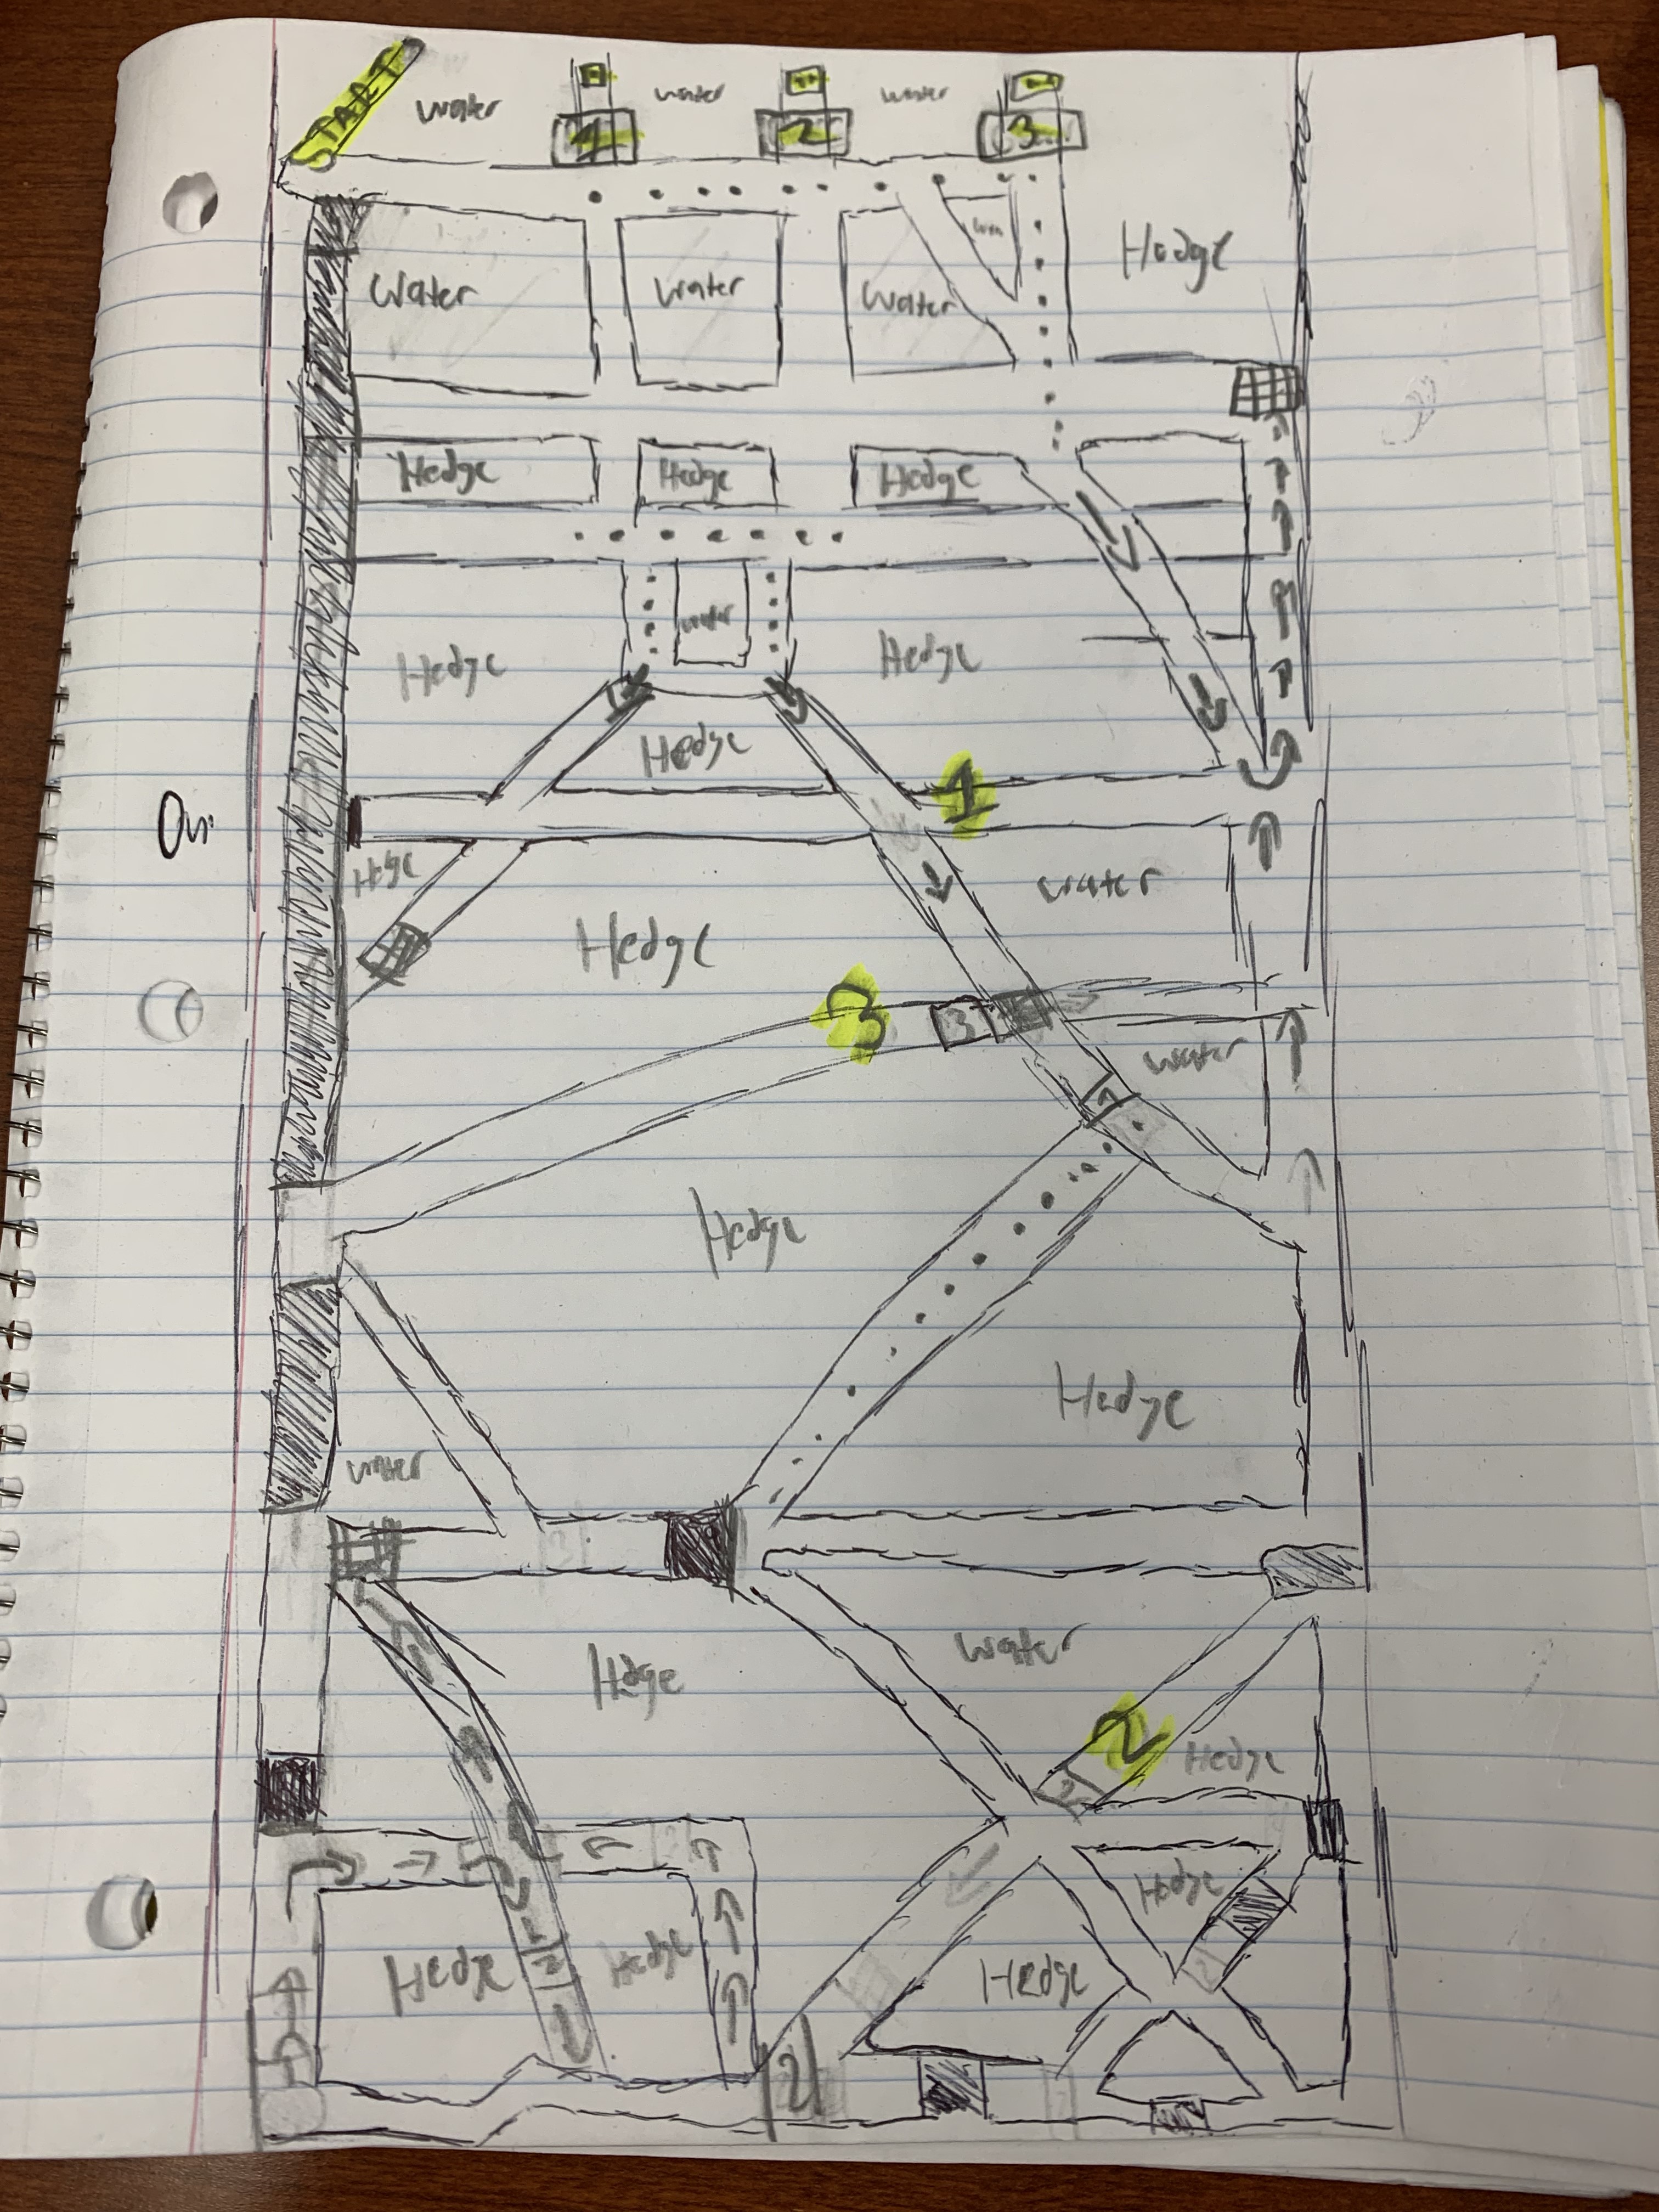 START
water
water
water
1
2
3
Hedge
Water
Water
Water
Hedge
Hedge
Hedge
water
Hedge
Hedge
Hedge
1
Hedge
water
Hedge
3
3
water
1
Hedge
Hedge
water
Hedge
water
2
2
Hedge
Hedge
Hedge
Hedge
Hedge
2
2